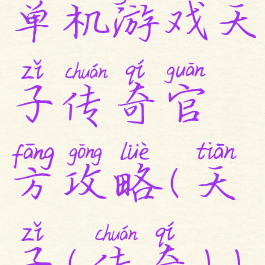 单机游戏天
zǐ chuán qí guān
子传奇官
fāng gōng lüè tiān
方攻略(天
zǐ chuán qí
子(传奇))